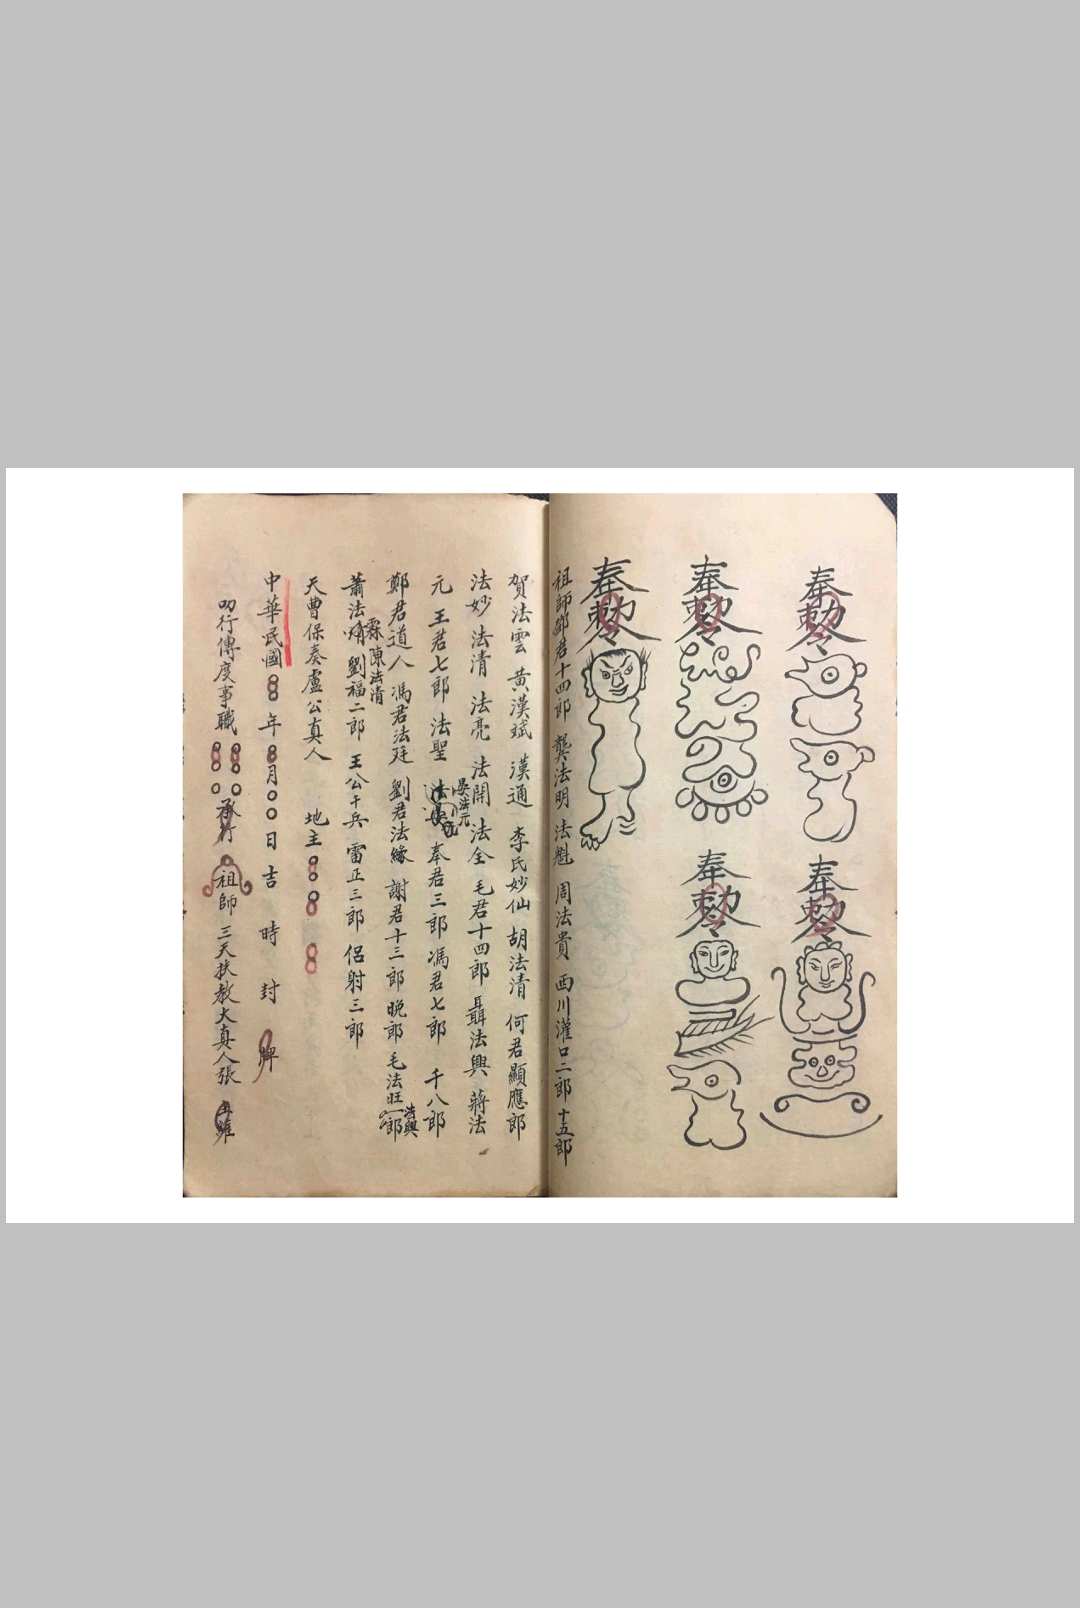 奉勅令
奉勅令
奉勅令
奉勅令
奉勅令
祖師鄧君十四郎 龔法明 法魁 周法貴 西川灌口二郎 十五郎
賀法雲 黄漢斌 漢通 李氏妙仙 胡法清 何君顯應郎
法妙 法清 法亮 法開 法全 毛君十四郎 聶法興 蔣法
元 王君七郎 法聖 奉君三郎 馮君七郎 千八郎
晏法元
鄭君道人 馮君法廷 劉君法緣 謝君十三郎 晚郎 毛法旺 一郎
法興
蕭法 劉福二郎 王公千兵 雷正三郎 侶射三郎
霖 陳法清
天曹保奏盧公真人 地主
中華民國 年 月 日吉時封牌
叨行傳度事職 承行 祖師三天扶教大真人張